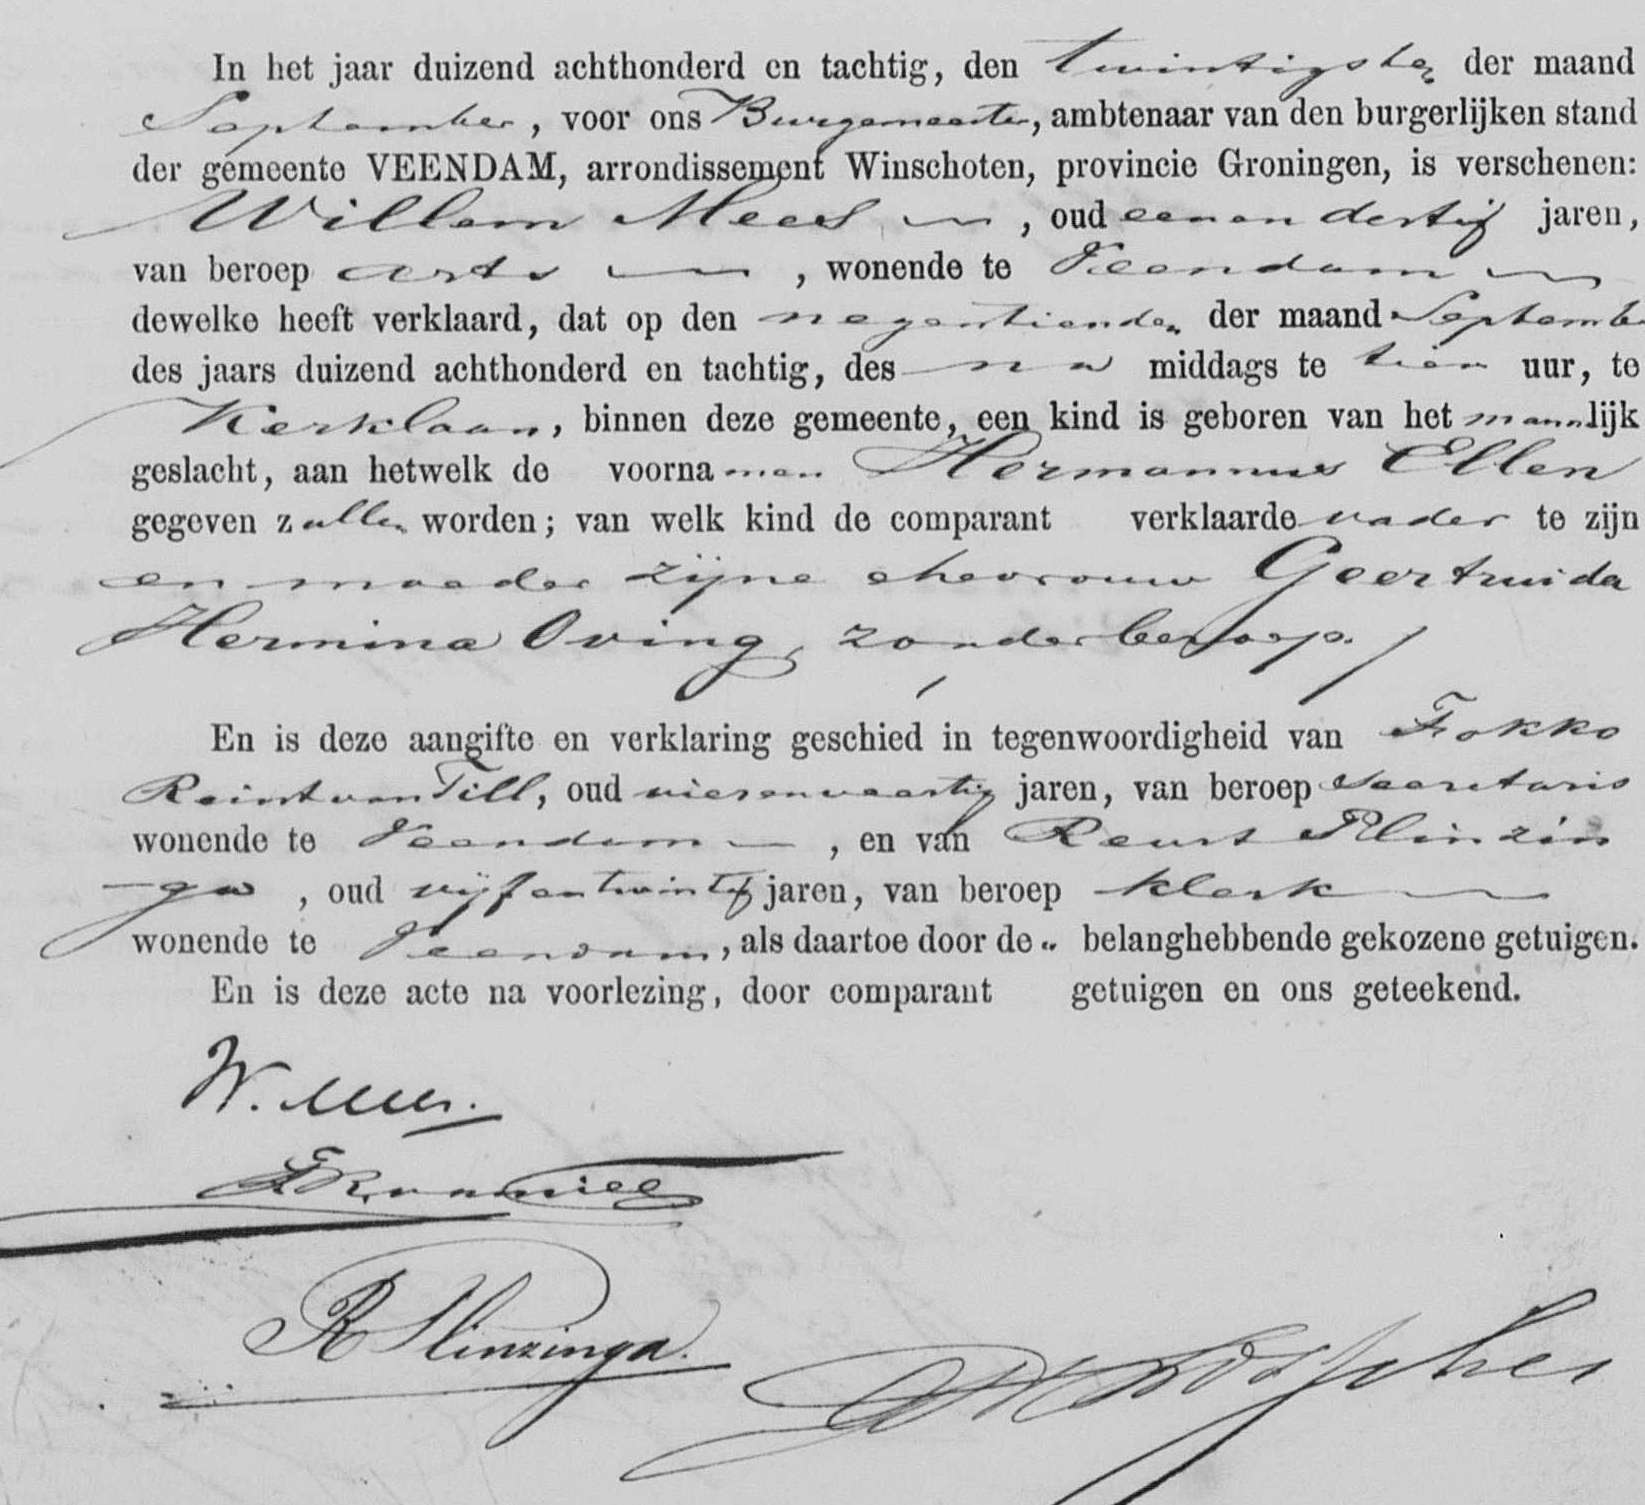 In het jaar duizend achthonderd en tachtig, den twintigsten der maand
September, voor ons Burgemeester, ambtenaar van den burgerlijken stand
der gemeente VEENDAM, arrondissement Winschoten, provincie Groningen, is verschenen:
Willem Mees, oud eenendertig jaren,
van beroep arts, wonende te Veendam
dewelke heeft verklaard, dat op den negentienden der maand September
des jaars duizend achthonderd en tachtig, des na middags te tien uur, te
Kerklaan, binnen deze gemeente, een kind is geboren van het mannlijk
geslacht, aan hetwelk de voornamen Hermannus Ellen
gegeven zullen worden; van welk kind de comparant verklaarde vader te zijn
en moeder zijne ehevrouw Geertruida
Hermina Oving, zonder beroep.
En is deze aangifte en verklaring geschied in tegenwoordigheid van Fokko
Reint van Till, oud vierenveertig jaren, van beroep secretaris
wonende te Veendam, en van Reurt Flinzin
ga, oud vijfentwintig jaren, van beroep klerk
wonende te Veendam, als daartoe door de belanghebbende gekozene getuigen.
En is deze acte na voorlezing, door comparant getuigen en ons geteekend.
W. Mees.
FRvanTill
R Flinzinga.